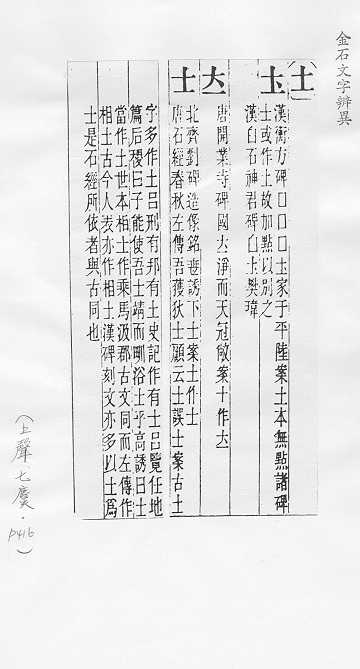 金石文字辨異
土
圡 漢衡方碑□□□圡家于平陸案土本無點諸碑
士或作土故加點以別之
漢白石神君碑白圡樊瑋
𡈽 唐開業寺碑國𡈽淨而天冠敵案十作𠀁
士 北齊劉碑造像銘䛕誘下士案土作士
唐石經春秋左傳吾獲狄士顧云土誤士案古土
字多作士呂刑有邦有土史記作有士呂覽任地
篇后稷曰子能使吾士靖而甽浴土乎高誘曰士
當作土世本相土作乘馬汲郡古文同而左傳作
相土古今人表亦作相士漢碑刻文亦多以士爲
土是石經所依者與古同也
(上聲七麌.
P416)